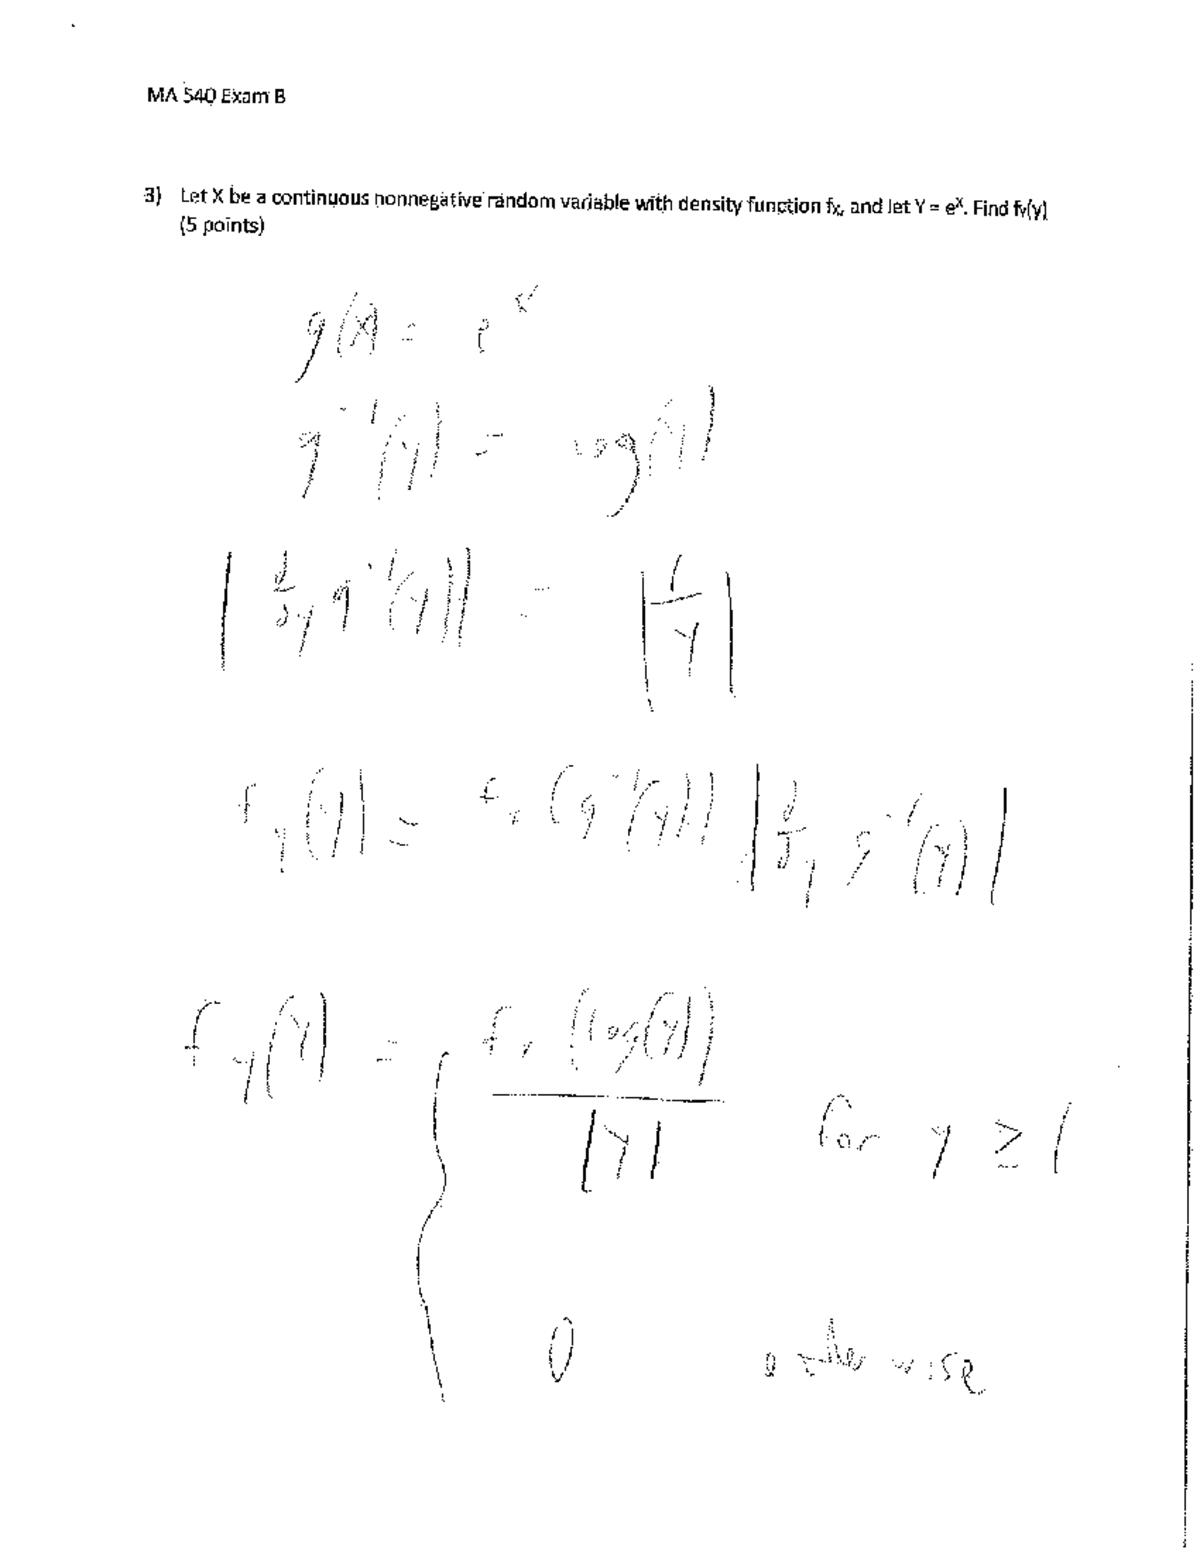 MA 540 Exam B
3) Let X be a continuous nonnegative random variable with density function fx, and let Y = eˣ. Find fY(y)
(5 points)
g(x) = eˣ
g⁻¹(y) = log(y)
| d/dy g⁻¹(y) | = | 1/y |
f_y(y) = f_x(g⁻¹(y)) | d/dy g⁻¹(y) |
f_y(y) = { f_x(log(y)) / |y| for y ≥ 1
0 otherwise